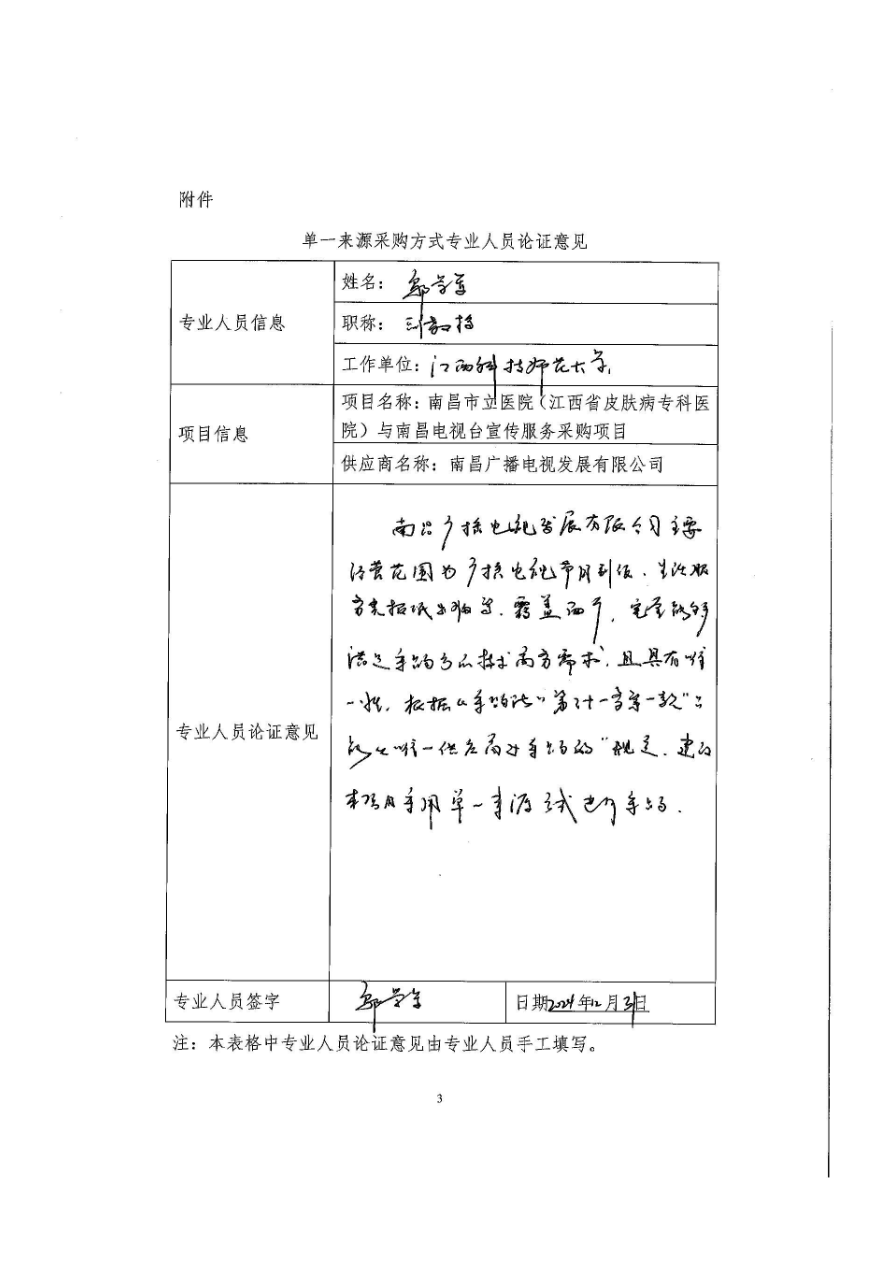 附件
单一来源采购方式专业人员论证意见
专业人员信息
姓名：
职称：副教授
工作单位：江西科技师范大学
项目信息
项目名称：南昌市立医院（江西省皮肤病专科医
院）与南昌电视台宣传服务采购项目
供应商名称：南昌广播电视发展有限公司
专业人员论证意见
南昌广播电视发展有限公司主要
经营范围为广播电视节目制作、
等。覆盖面广，完全能够
满足采购的技术服务需求，且具有唯
一性，根据《采购法》第三十一条第一款“只
能从唯一供应商处采购的”规定，建议
本项目采用单一来源方式进行采购．
专业人员签字
日期2024年12月31日
注：本表格中专业人员论证意见由专业人员手工填写。
3